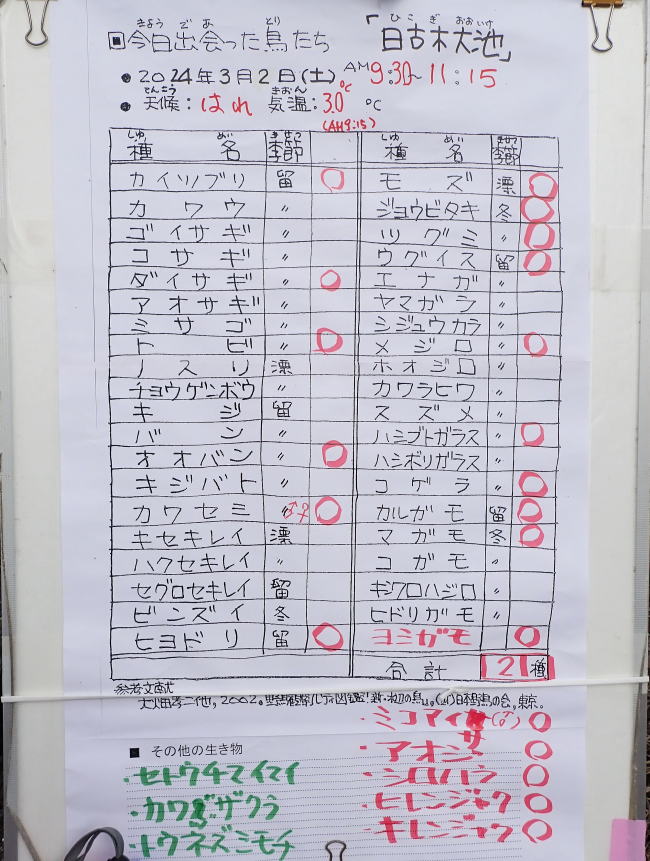 きょう であ とり ひこ ぎ おおいけ
■今日出会った鳥たち 「日古木大池」
●2024年3月2日(土) AM9:30~11:15
てんこう きおん
●天候:はれ 気温:3.0℃ ℃
(AM9:15)
しゅ めい きせつ しゅ めい きせつ
種名 季節 種名 季節
カイツブリ 留 ○ モズ 漂 ○
カワウ 〃 ジョウビタキ 冬 ○
ゴイサギ 〃 ツグミ 〃 ○
コサギ 〃 ウグイス 留 ○
ダイサギ 〃 ○ エナガ 〃
アオサギ 〃 ヤマガラ 〃
ミサゴ 〃 シジュウカラ 〃
トビ 〃 ○ メジロ 〃 ○
ノスリ 漂 ホオジロ 〃
チョウゲンボウ 〃 カワラヒワ 〃
キジ 留 スズメ 〃
バン 〃 ハシブトガラス 〃 ○
オオバン 〃 ○ ハシボソガラス 〃
キジバト 〃 コゲラ 〃 ○
カワセミ 〃♂♀ ○ カルガモ 留 ○
キセキレイ 漂 マガモ 冬 ○
ハクセキレイ 〃 コガモ 〃
セグロセキレイ 留 キンクロハジロ 〃
ビンズイ 冬 ヒドリガモ 〃
ヒヨドリ 留 ○ ヨシガモ ○
合計 21種
参考文献
2002。 日本野鳥の会,東京。
・ミコアイサ(♂) ○
・アオジ ○
・シロハラ ○
・ヒレンジャク ○
・キレンジャク ○
■ その他の生き物
・セトウチマイマイ
・カワヅザクラ
・トウネズミモチ